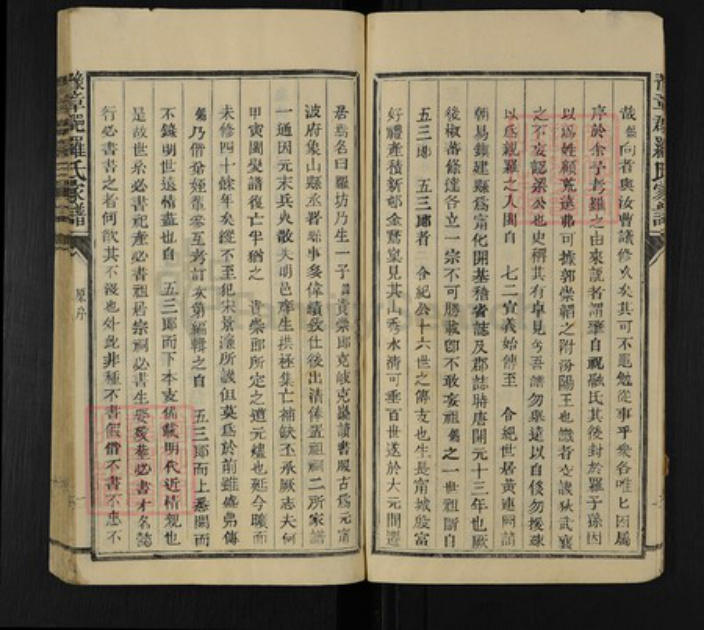 哉 向者與汝曹議修久矣其可不黽勉從事乎衆各唯匕因屬
序於余予考羅之由來説者謂肇自祝融氏其後封於羅子孫因
以爲姓顧荒遠弗可據郭崇韜之附汾陽王也識者交譏狄武襄
之不妄認梁公也史稱其有卓見兮吾譜勿舉遠以自侈勿援疎
以爲親羅之入閩自 七二宣義始傳至 令紀世居黃連峒請
朝易鎮建縣爲甯化開基稽省誌及郡誌時唐開元十三年也厥
後椒蕃條達各立一宗不可勝載卽不敢妄祖 之一世祖斷自
五三郎 五三郎者 令紀公十六世之傳支也生長甯城殷富
好禮產積新邨金鵞窠見其山秀水清可垂百世遂於大元間遷
居焉名曰羅坊乃生一子 貴崇郎克岐克嶷讀書履古爲元甯
波府象山縣丞晉縣事多偉績致仕後出清俸置祖祠二所家譜
一通因元末兵火散失明邑庠生拱極集亡補缺丕承厥志夫何
甲寅閩變譜復亡乎猶之 貴崇郎所定之遭元燼也延今曠而
未修四十餘年矣縱不至犯宋景濂所誡但莫爲於前雖盛弗傳
乃偕弟姪輩參互考訂次第編輯之自 五三郎而上悉闕而
不錄明世遠情盡也自 五三郎而下本支備載明代近情親也
是故世系必書祀產必書祖居宗祠必書生娶殁葬必書才名懿
行必書書之者何欲其不沒也外此非種不書假借不書不忠不
豫章郡羅氏家譜
原序
一